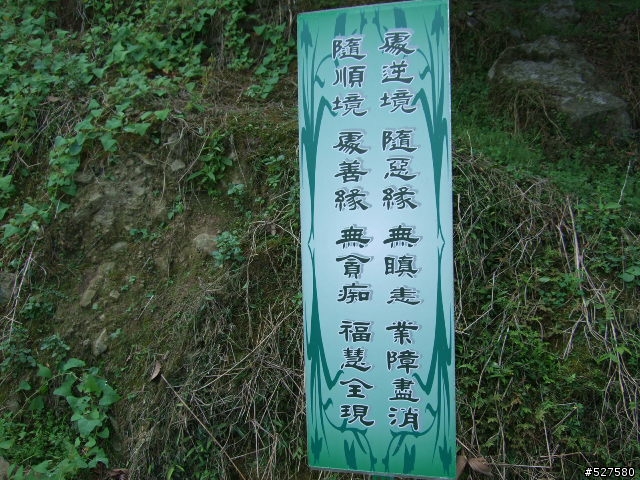 處逆境 隨惡緣 無瞋恚 業障盡消
隨順境 處善緣 無貪痴 福慧全現
#527580